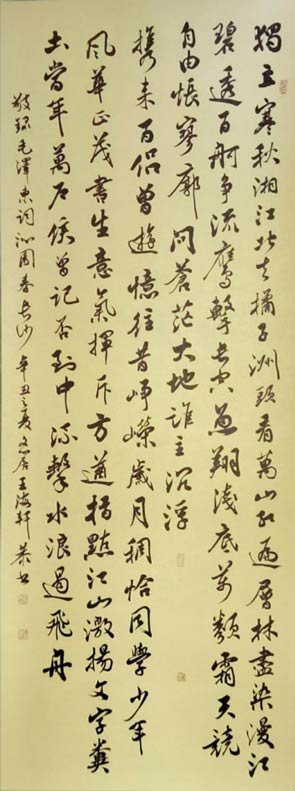 獨立寒秋湘江北去橘子洲頭看萬山紅遍層林盡染漫江
碧透百舸爭流鷹擊長空魚翔淺底万類霜天競
自由悵寥廓問蒼茫大地誰主沉浮
携來百侶曾遊憶往昔崢嶸歲月稠恰同學少年
風華正茂書生意氣揮斥方遒指點江山激揚文字糞
土當年萬戶侯曾記否到中流擊水浪遏飛舟
敬錄毛澤東詞沁園春長沙辛丑之夏王海軒恭書